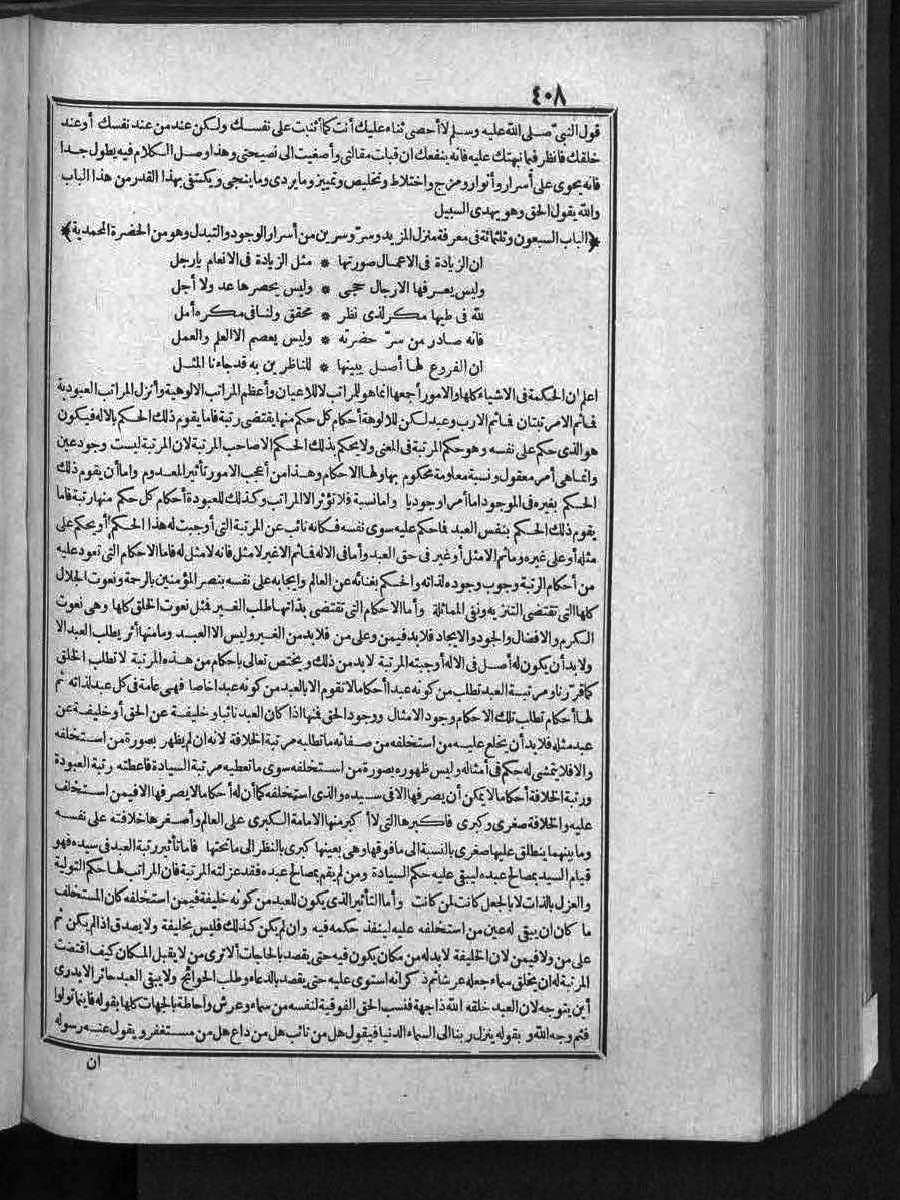 ٤٠٨
قول النبيّ صلى الله عليه وسلم لا أحصى ثناء عليك أنت كما أثنيت على نفسك ولكن عند من عند نفسك أو عند
خلقك فانظر فيما نبهتك عليه فانه ينفعك ان قبلت مقالتى وأصغيت الى نصيحتى وهذا وصل الكلام فيه يطول جدا
فانه يحوى على أسرار وأنوار ومزج واختلاط وتخليص وتمييز وما يردى وما ينجى ويكتفى بهذا القدر من هذا الباب
والله يقول الحق وهو يهدى السبيل
﴿الباب السبعون وثلثمائة فى معرفة منزل المزيد وسرّ وسرين من أسرار الوجود والتبدل وهو من الحضرة المحمدية﴾
ان الزيادة فى الاعمال صورتها * مثل الزيادة فى الانعام يارجل
وليس يعرفها الا رجال حجى * وليس يحصرها عد ولا أجل
لله فى طيها مكر لذى نظر * محقق ولنا فى مكره أمل
فانه صادر من سرّ حضرته * وليس يعصم الا العلم والعمل
ان الفروع لها أصل يبينها * للناظرين به قد جاءنا المثل
اعلم ان الحكمة فى الاشياء كلها والامور أجمعها انما هو للمراتب لا للاعيان وأعظم المراتب الالوهية وأنزل المراتب العبودية
فما ثم الا مرتبتان فما ثم الا رب وعبد لكن للالوهة أحكام كل حكم منها يقتضى رتبة فاما يقوم ذلك الحكم بالاله فيكون
هو الذى حكم على نفسه وهو حكم المرتبة فى المعنى ولا يحكم بذلك الحكم الا صاحب المرتبة لان المرتبة ليست وجود عين
وانما هى أمر معقول ونسبة معلومة محكوم بها ولها الاحكام وهذا من أعجب الامور تأثير المعدوم واما أن يقوم ذلك
الحكم بغيره فى الموجود اما أمرا وجوديا واما نسبة فلا تؤثر الا المراتب وكذلك للعبودة أحكام كل حكم منها رتبة فاما
يقوم ذلك الحكم بنفس العبد فما حكم عليه سوى نفسه فكانه نائب عن المرتبة التى أوجبت له هذا الحكم أو يحكم على
مثله أو على غيره وما ثم الا مثل أو غير فى حق العبد وأما فى الاله فما ثم الا غير لا مثل فانه لا مثل له فاما الاحكام التى تعود عليه
من أحكام الرتبة وجوب وجوده لذاته والحكم بغنائه عن العالم وايجابه على نفسه بنصر المؤمنين بالرحمة ونعوت الجلال
كلها التى تقتضى التنزيه ونفى المماثلة وأما الاحكام التى تقتضى بذاتها طلب الغير فمثل نعوت الخلق كلها وهى نعوت
الكرم والافضال والجود والايجاد فلا بد فيمن وعلى من فلا بد من الغير وليس الا العبد ومامنها أثر يطلب العبد الا
ولا بد أن يكون له أصل فى الاله أوجبته المرتبة لا بد من ذلك ويختص تعالى باحكام من هذه المرتبة لا تطلب الخلق
كما قرّرنا ومرتبة العبد تطلب من كونه عبدا أحكاما لا تقوم الا بالعبد من كونه عبدا خاصا فهى عامة فى كل عبد لذاته ثم
لها أحكام تطلب تلك الاحكام وجود الامثال ووجود الحق فمنها اذا كان العبد نائبا وخليفة عن الحق أو خليفة عن
عبد مثله فلا بد أن يخلع عليه من استخلفه من صفاته ما تطلبه مرتبة الخلافة لانه ان لم يظهر بصورة من استخلفه
والا فلا يتمشى له حكم فى أمثاله وليس ظهوره بصورة من استخلفه سوى ما تعطيه مرتبة السيادة فاعطته رتبة العبودة
ورتبة الخلافة أحكاما لا يمكن أن يصرفها الا فى سيده والذى استخلفه كما أن له أحكاما لا يصرفها الا فيمن استخلف
عليه والخلافة صغرى وكبرى فاكبرها التى لا أكبر منها الامامة الكبرى على العالم وأصغرها خلافته على نفسه
وما بينهما ينطلق عليها صغرى بالنسبة الى ما فوقها وهى بعينها كبرى بالنظر الى ما تحتها فاما تأثير رتبة العبد فى سيده فهو
قيام السيد بمصالح عبده ليبقى عليه حكم السيادة ومن لم يقم بمصالح عبده فقد عزلته المرتبة فان المراتب لها حكم التولية
والعزل بالذات لا بالجعل كانت لمن كانت وأما التأثير الذى يكون للعبد من كونه خليفة فيمن استخلفه كان المستخلف
ما كان ان يبقى له عين من استخلفه عليه لينفذ حكمه فيه وان لم يكن كذلك فليس بخليفة ولا يصدق اذا لم يكن ثم
على من ولا فيمن لان الخليفة لا بد له من مكان يكون فيه حتى يقصد بالحاجات ألا ترى من لا يقبل المكان كيف اقتضت
المرتبة له ان يخلق سماء جعله عرشا ثم ذكر انه استوى عليه حتى يقصد بالدعاء وطلب الحوائج ولا يبقى العبد حائرا لا يدرى
أين يتوجه لان العبد خلقه الله ذا جهة فنسب الحق الفوقية لنفسه من سماء وعرش واحاطة بالجهات كلها بقوله فاينما تولوا
فثم وجه الله و بقوله ينزل ربنا الى السماء الدنيا فيقول هل من تائب هل من داع هل من مستغفر ويقول عنه رسوله
ان